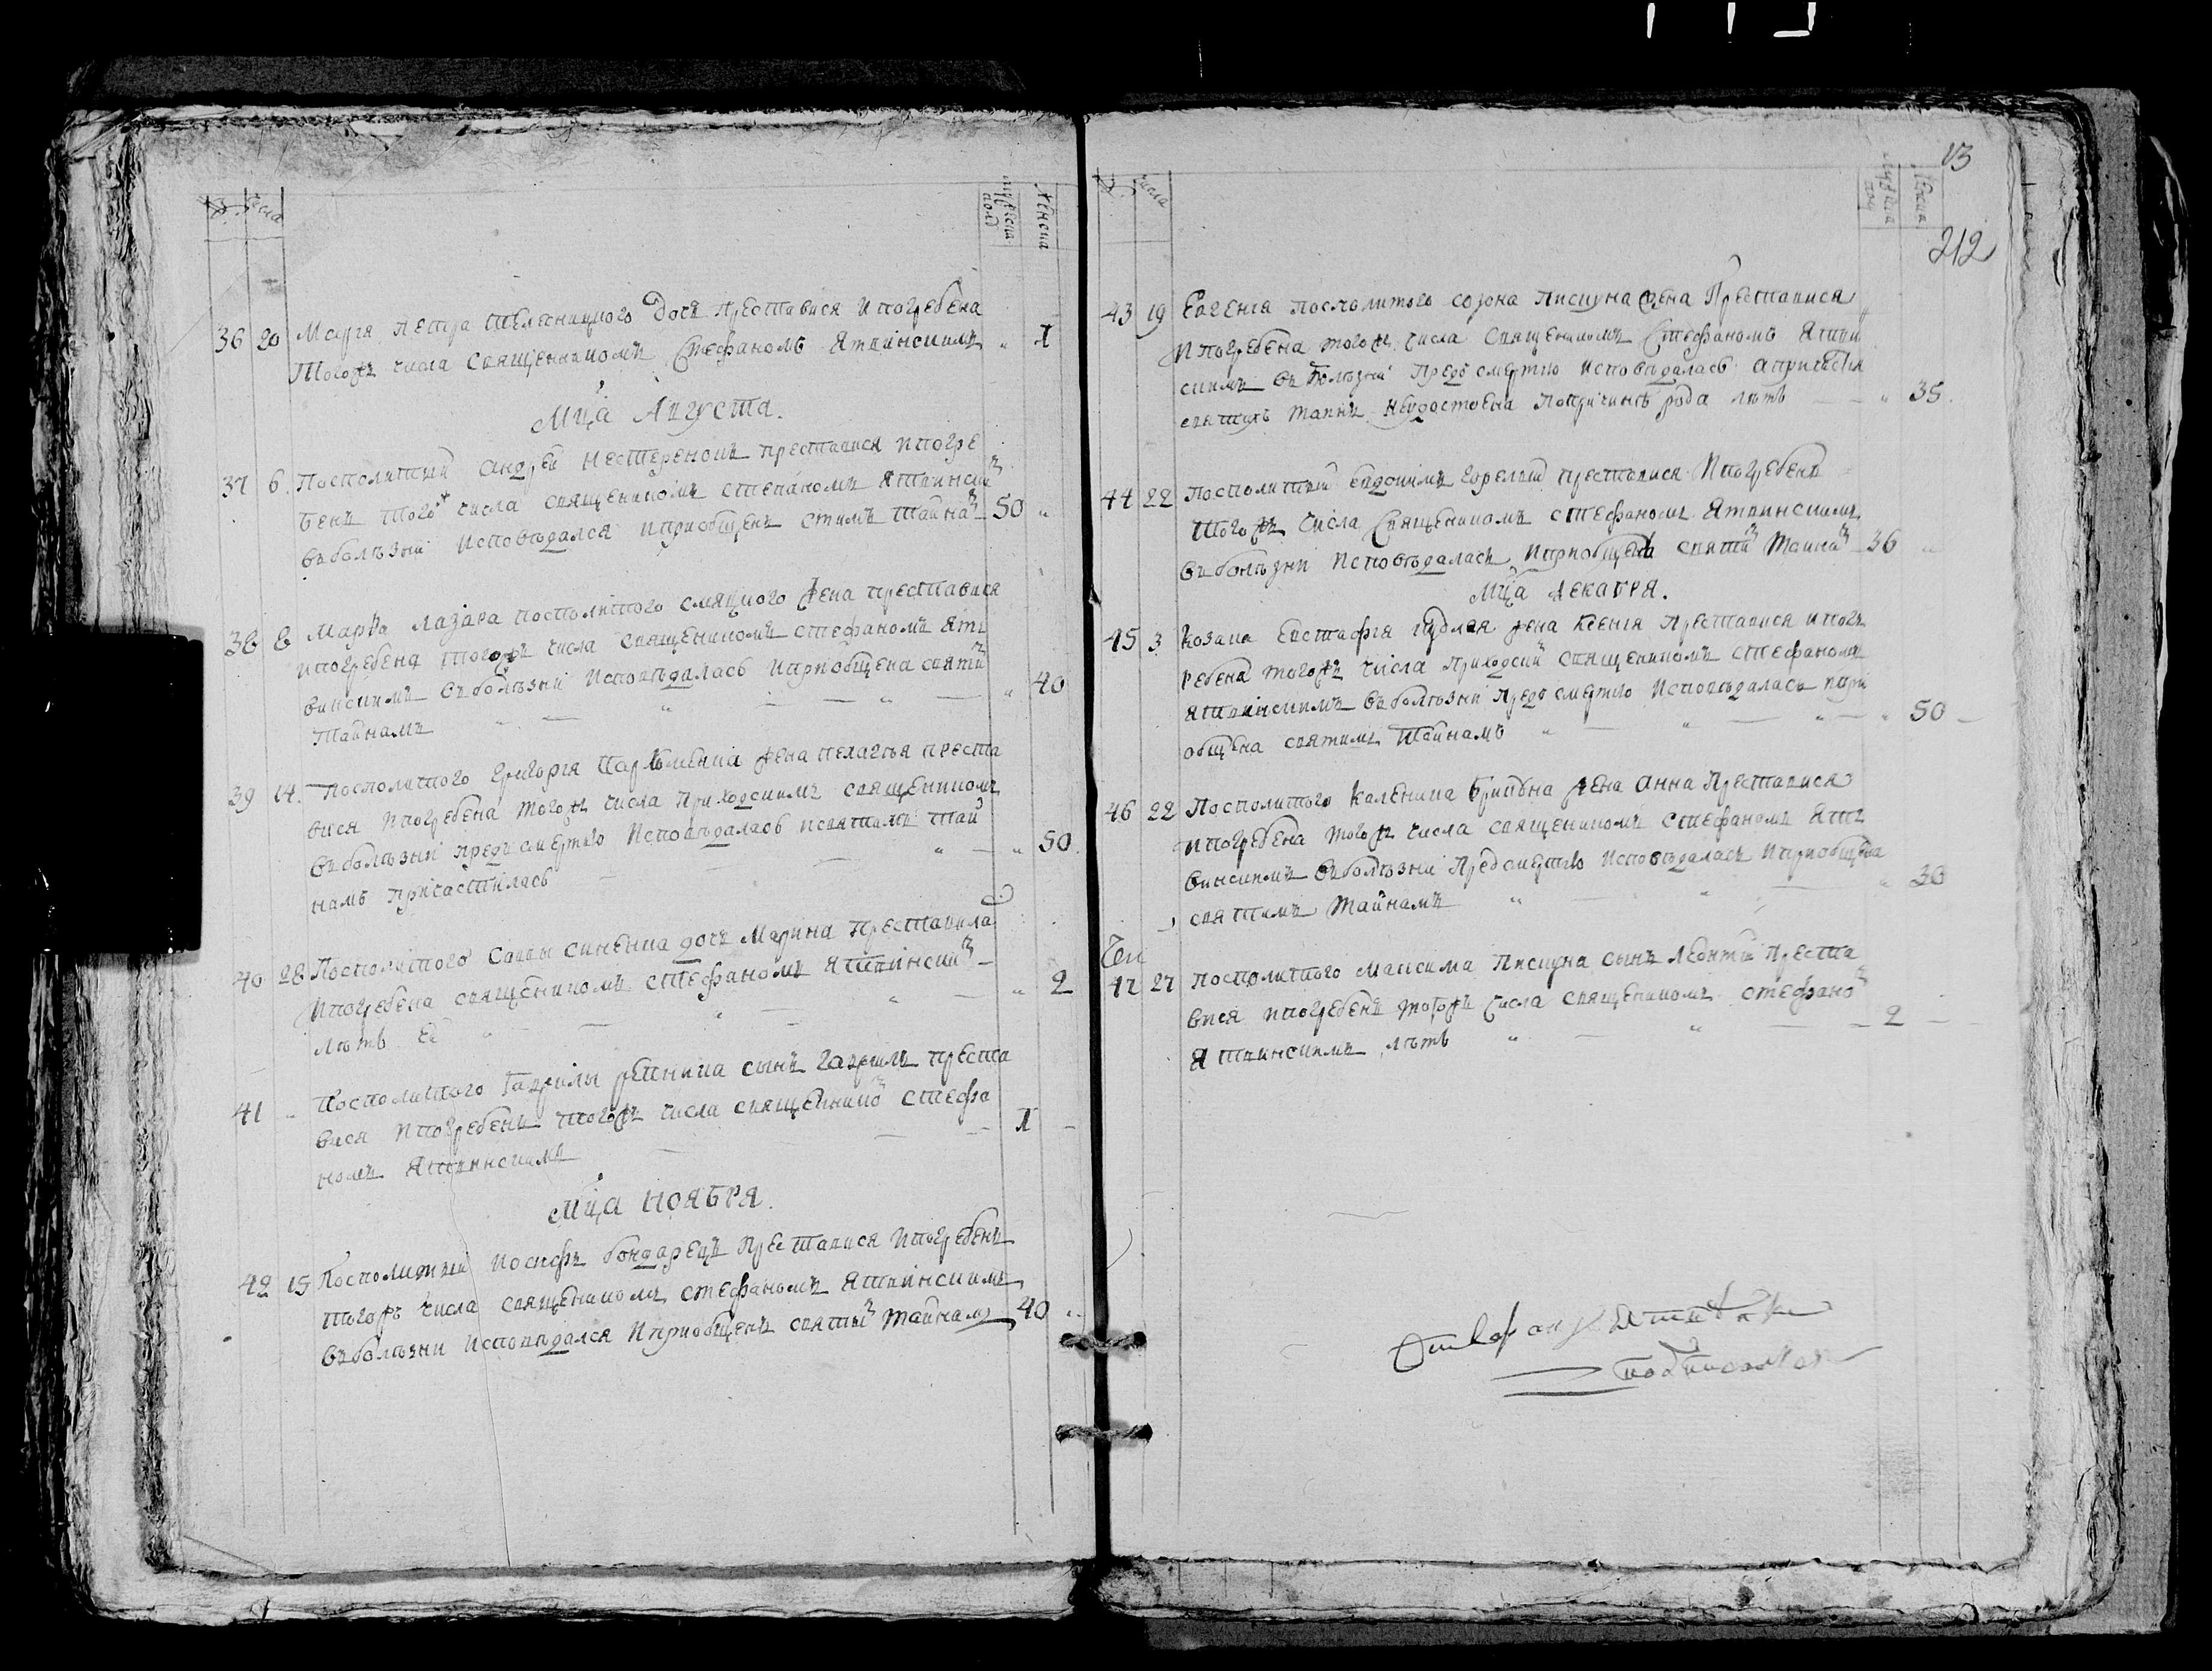 №. Числа мужеска полъ женска
36 20 Марѳя Петра Телесницкого дочъ преставися и погребена
тогожъ числа священникомъ Стефаномъ Ятвинскимъ " 1
Мца Августа.
37 6. Посполитый Андрей Нестеренокъ преставися и погре
бенъ того ж числа священникомъ Степаномъ Ятвински
въ болѣзни исповѣдался и приобщенъ стимъ тайна 50 "
38 8 Марѳа Лазара посполитого жена преставися
и погребена тогожъ числа священникомъ Стефаномъ Ят
винскимъ въ болѣзни исповѣдалась и приобщена святи " 40
тайнамъ
39 14. Посполитого Григорія Пархоменка жена Пелагѣя преста
вися и погребена тогожъ числа приходскимъ священникомъ
въ болѣзни предъ смертию исповѣдалась и святимъ тай " 50
намъ причастилась
40 28 Посполитого Саввы Синенка дочъ Марина преставила
и погребена священникомъ Стефаномъ Ятвински
лѣтъ Ей " 2
41 - Посполитого Гаврилы Репника сынъ Гаврилъ преста
вися и погребенъ тогожъ числа священнико Стефа
номъ Ятвинскимъ 1 -
Мца Ноября.
42 15 Посполитый Иосифъ Бондарецъ преставися и погребенъ
тогожъ числа священникомъ Стефаномъ Ятвинскимъ
въ болѣзни исповѣдался и приобщенъ святы тайнамъ 40 "
13
212
№. Числа мужеска полъ женска
43 19 Евгенія посполитого Созона Пискуна жена преставися
и погребена тогожъ числа священникомъ Стефаномъ Ятвин
скимъ въ болѣзни предъ смертию исповѣдалась а причастія
святихъ таинъ неудостоена по причинѣ рода лѣтъ " 35.
44 22 Посполитый Евдокимъ Горелый преставися и погребенъ
тогожъ числа священникомъ Стефаномъ Ятвинскимъ
въ болѣзни исповѣдалась и приобщена святи тайна 36 "
Мца Декабря.
45 3 Козака Евстафія жена Ксенія преставися и погъ
ребена тогожъ числа приходски священникомъ Стефаномъ
Ятвинскимъ въ болѣзни предъ смертию исповѣдалась и при
общена святимъ тайнамъ " 50 -
46 22 Посполитого Каленика жена Анна преставися
и погребена тогожъ числа священникомъ Стефаномъ Ят
винскимъ въ болѣзни предъ смертію исповѣдалась и приобщена
святимъ тайнамъ " 30
47 27 Посполитого Максима Пискуна сынъ Леонтій преста
вися и погребенъ тогожъ числа священникомъ Стефано
Ятвинскимъ лѣтъ 2 -